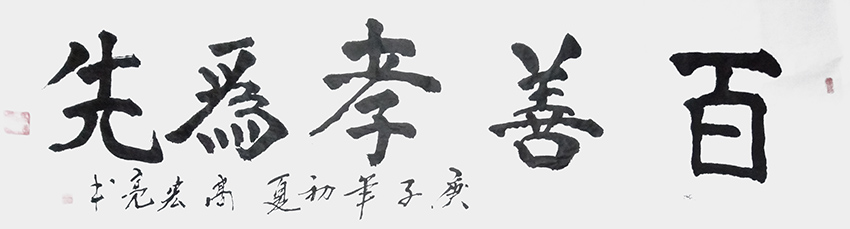 百善孝為先
庚子年初夏 高宏亮书